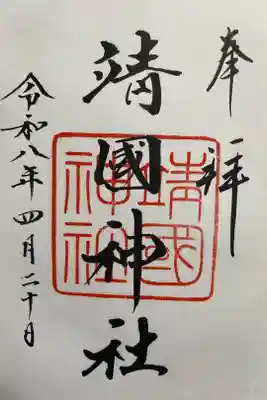 奉拝
靖國神社
靖國神社
令和八年四月二十日